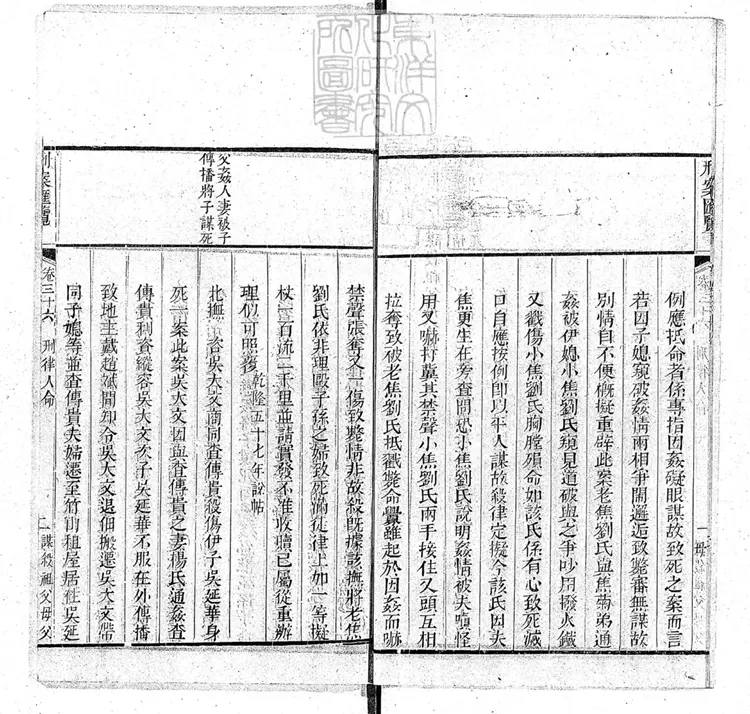 刑案匯覽
例應抵命者係專指因姦礙眼謀故致死之案而言
若因子媳窺破姦情兩相爭鬧邂逅致斃審無謀故
別情自不便概擬重辟此案老焦劉氏與焦菊弟通
姦被伊媳小焦劉氏窺見道破與之爭吵用撥火鐵
叉戳傷小焦劉氏胸膛殞命如該氏係有心致死滅
口自應按例即以平人謀故殺律定擬今該氏因夫
焦更生在旁查問恐小焦劉氏說明姦情被夫嗔怪
用叉嚇打冀其禁聲小焦劉氏兩手接住叉頭互相
拉奪致被老焦劉氏抵戳斃命釁雖起於因姦而嚇
禁聲張奪叉一傷致斃情非故殺既據該撫將老焦
劉氏依非理毆子孫之婦致死滿徒律上加一等擬
杖一百流二千里並請實發不准收贖已屬從重辦
理似可照覆 乾隆五十七年說帖
父姦人妻被子
傳播將子謀死
北撫 咨吳大文商同查傳貴殺傷伊子吳延華身
死一案此案吳大文因與查傳貴之妻楊氏通姦查
傳貴利資縱容吳大文次子吳延華不服在外傳播
致地主戴趙斌聞知令吳大文退佃搬遷吳大文帶
同子媳等並查傳貴夫婦遷至竹山租屋居住吳延
刑案匯覽
卷三十六 刑律人命
二 謀殺祖父母父